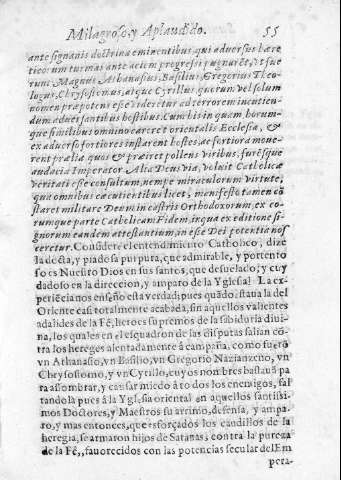 Milagroso, y Aplaudido. 55
ante signanis doctrina eminentibus, qui adversus hæreticorum
turmas ante aciem progressi pugnarēt, et fue
runt Magnus Athanasius, Basilius, Gregorius Theo-
logus, Chrysostomus, atque Cyrillus quorum vel solum
nomen præpotens esse videretur ad terrorem incutien-
dum adversantibus hostibus. Cum his in quam horum-
que similibus omnino careret orientalis Ecclesia, &
ex adverso fortiores instarent hostes, ac fortiora move-
rent prælia quos & præiret pollens viribus, furēsque
audacia Imperator. Alta Deus via, voluit Catholicæ
veritati esse consultum, nempe miraculorum virtute,
qua omnibus cæcutientibus licet, manifesto tamen cō
staret militare Deum in castris Orthodoxorum, ex eo-
rumque parte Catholicam Fidem, in qua ex editione si-
gnorum eandem attestantium, in esse Dei potentia nos
ceretur. Considere el entendimiento Catholico, dize
la docta, y piadosa purpura, que admirable, y portento
so es Nuestro Dios en sus santos, que desuelado, y cuy
dadoso en la direccion, y amparo de la Yglesia! La ex-
periēcia nos enseñò esta verdad; pues quādo estaua la del
Oriente casi totalmente acabada, sin aquellos valientes
adalides de la Fè, hetoes supremos de la sabiduria divi-
na, los quales en el esquadron de las disputas salian cō-
tra los hereges alentadamente à campaña, como fuerō
vn Athanasio, vn Basilio, vn Gregorio Nazianzeno, vn
Chrysostomo, y vn Cyrillo, cuyos nombres bastauā pa
ra assombrar, y causar miedo à todos los enemigos, fal
tandola pues à la Yglesia oriental en aquellos santissi-
mos Doctores, y Maestros su arrimo, defensa, y ampa-
ro, y mas entonces, que esforçados los caudillos de la
heregia, se armaron hijos de Satanas; contra la pureza
de la Fè, fauorecidos con las potencias secular del Em
pera-